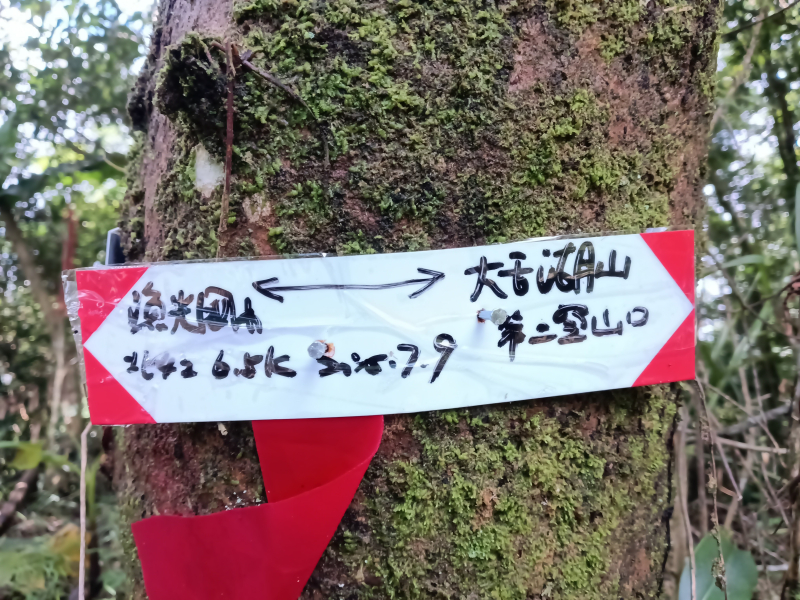 漁光國小 ↔ 大舌湖山
北42 6.5K 7.9 第二登山口